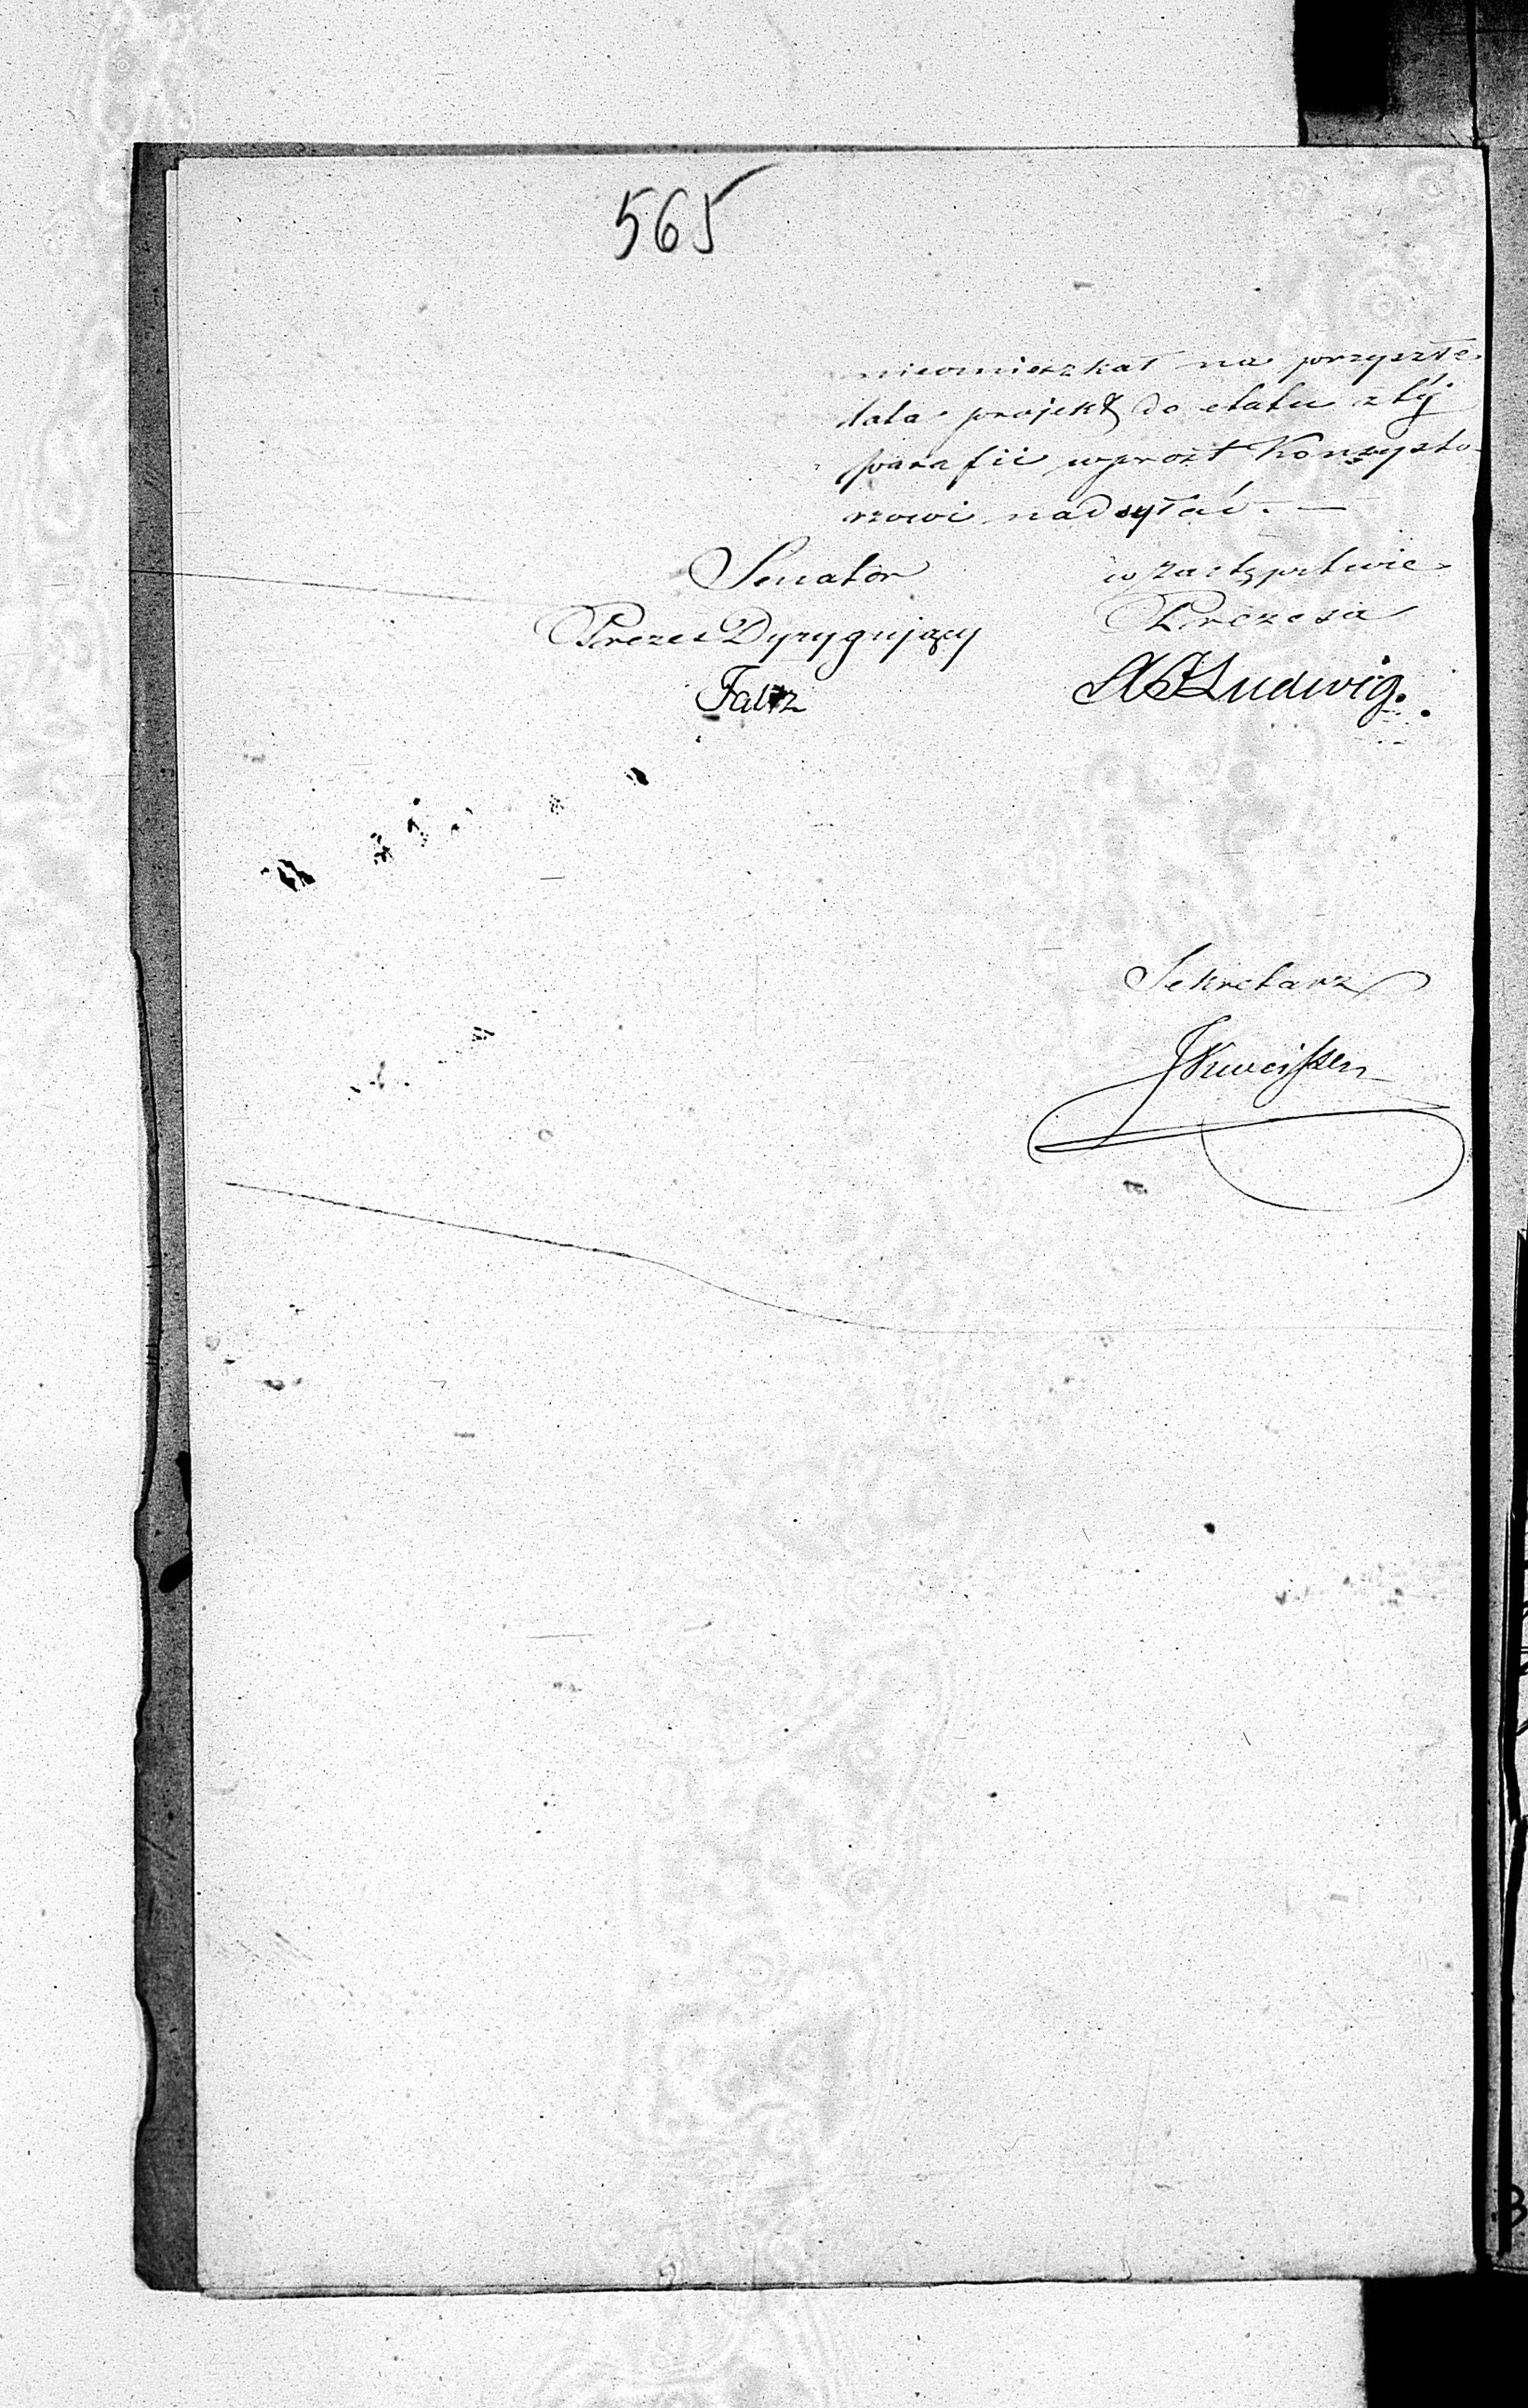 565
nieomieszkał na przyszłe
lata projekt do etatu z téj
parafii wprost Konsysto-
rzowi nadsyłać. —
Senator
Prezes Dyrygujący
Faltz
w zastępstwie
Prezesa
Ludwig.
Sekretarz